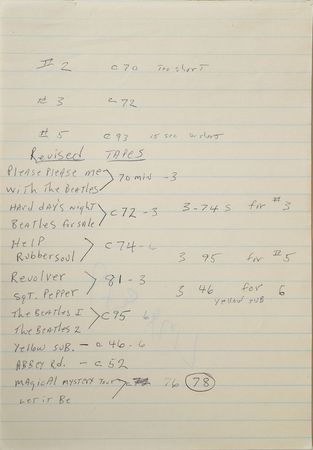 # 2 c70 Too short
# 3 c72
# 5 c93 15 sec short
Revised TAPES
Please Please me
70 min -3
With The Beatles
Hard day's night
c72 -3 3-74 5 for #3
Beatles for sale
Help
c74-6
Rubber soul 3 95 for #5
Revolver
81-3
Sgt. Pepper 3 46 for 6
Yellow sub
The Beatles I
c95 6
The Beatles 2
Yellow sub. - c 46-6
Abbey Rd. - c52
Magical mystery Tour 76 78
Let it Be